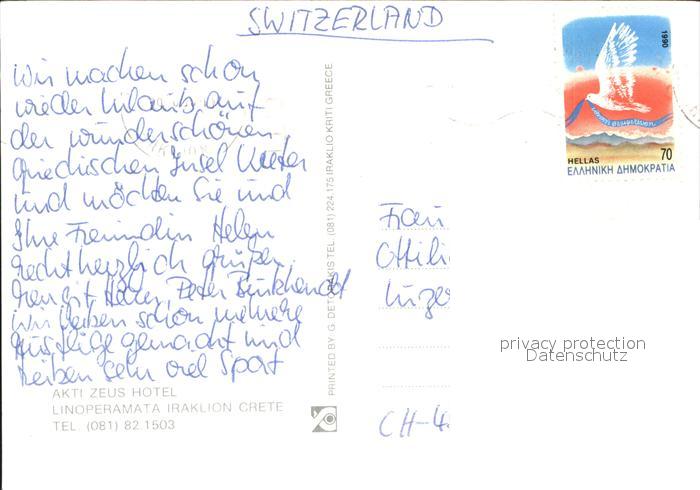 SWITZERLAND
Wir machen schon
wieder Urlaub auf
der wunderschönen
griechischen Insel Kreta
und möchten Sie und
Ihre Freundin Helen
recht herzlich grüßen.
Peter
wir haben schon mehrere
Ausflüge gemacht und
treiben sehr viel Sport
AKTI ZEUS HOTEL
LINOPERAMATA IRAKLION CRETE
TEL. (081) 82.1503
PRINTED BY: G. DETORAKIS TEL. (081) 224.175 IRAKLIO KRITI GREECE
1990
HELLAS 70
ΕΛΛΗΝΙΚΗ ΔΗΜΟΚΡΑΤΙΑ
Frau
Ottili
Luze
CH-4
privacy protection
Datenschutz